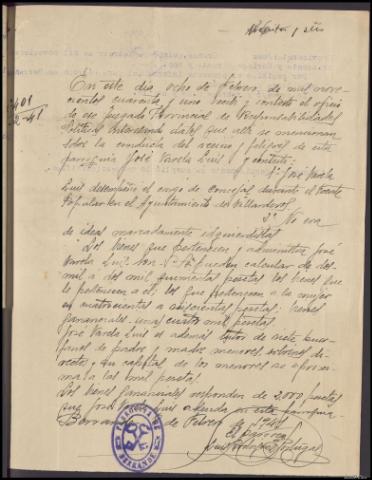 En este día, ocho de Febrero, de mil nove-
cientos cuarenta y uno recibí y contesto el oficio
de ese juzgado Provincial de Responsabilidades
Políticas interesando datos que allí se mencionan
sobre la conducta del vecino y feligrés de esta
parroquia José Varela Luis y contesto:
1º José Varela
Luis desempeñó el cargo de concejal durante el Frente
Popular en el Ayuntamiento de Villardevós
2º No era
de ideas marcadamente izquierdistas
Los bienes que pertenecen y administra José
Varela Luis son 1º Se pueden calcular de dos
mil a dos mil quinientas pesetas los bienes que
le pertenecen a él; los que pertenecen a la mujer
en cuatrocientas a quinientas pesetas; bienes
gananciales unas cuatro mil pesetas.
José Varela Luis es además tutor de siete huer-
fanos de padre y madre menores, sobrinos di-
rectos y su capital de los menores se aproxi-
ma a las mil pesetas.
Los bienes gananciales responden de 2.000 pesetas
que José Varela Luis adeuda en esta parroquia
de Febrero de 1941
El párroco